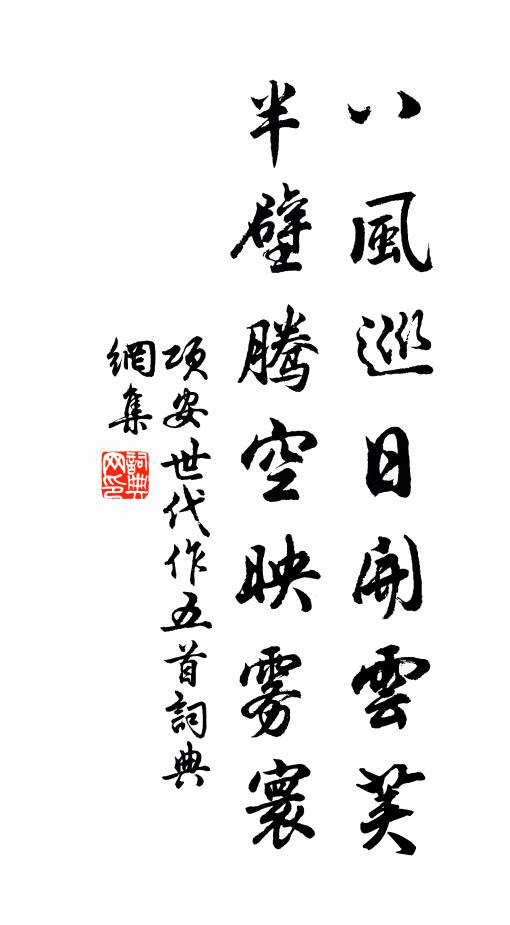 八風巡日開雲芙
半壁騰空映雾寰
項安世代作五首詞典
網集
詞典網印